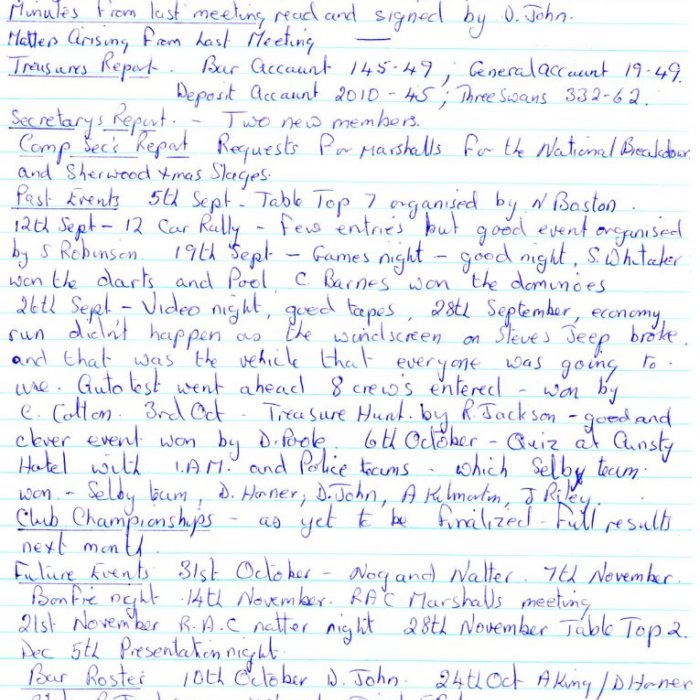 Minutes from last meeting read and signed by D. John.
Matters Arising from Last Meeting —
Treasures Report. Bar Account 145-49, General account 19-49.
Deposit Account 2010-45; Three Swans 332-62.
Secretarys Report. - Two new members.
Comp Sec's Report Requests for Marshalls for the National Breakdown
and Sherwood Xmas Stages.
Past Events 5th Sept - Table Top 7 organised by N Baston.
12th Sept - 12 Car Rally - few entries but good event organised
by S Robinson. 19th Sept - Games night - good night, S. Whitaker
won the darts and Pool, C. Barnes won the dominoes
26th Sept - Video night, good tapes, 28th September, economy
run didn't happen as the windscreen on Steves Jeep broke.
and that was the vehicle that everyone was going to
use. Autotest went ahead 8 crew's entered - won by
C. Cotton. 3rd Oct - Treasure Hunt. by R Jackson - good and
clever event won by D. Poole. 6th October - Quiz at Ansty
Hotel with I.A.M. and Police teams - which Selby team
won - Selby team, D. Horner, D. John, A Kilmartin, J Riley.
Club Championships - as yet to be finalized - Full results
next month.
Future Events 31st October - Nog and Natter. 7th November.
Bonfire night 14th November. RAC Marshalls meeting
21st November R.A.C natter night 28th November Table Top 2.
Dec 5th Presentation night.
Bar Roster 10th October D. John. 24th Oct A King / D Horner